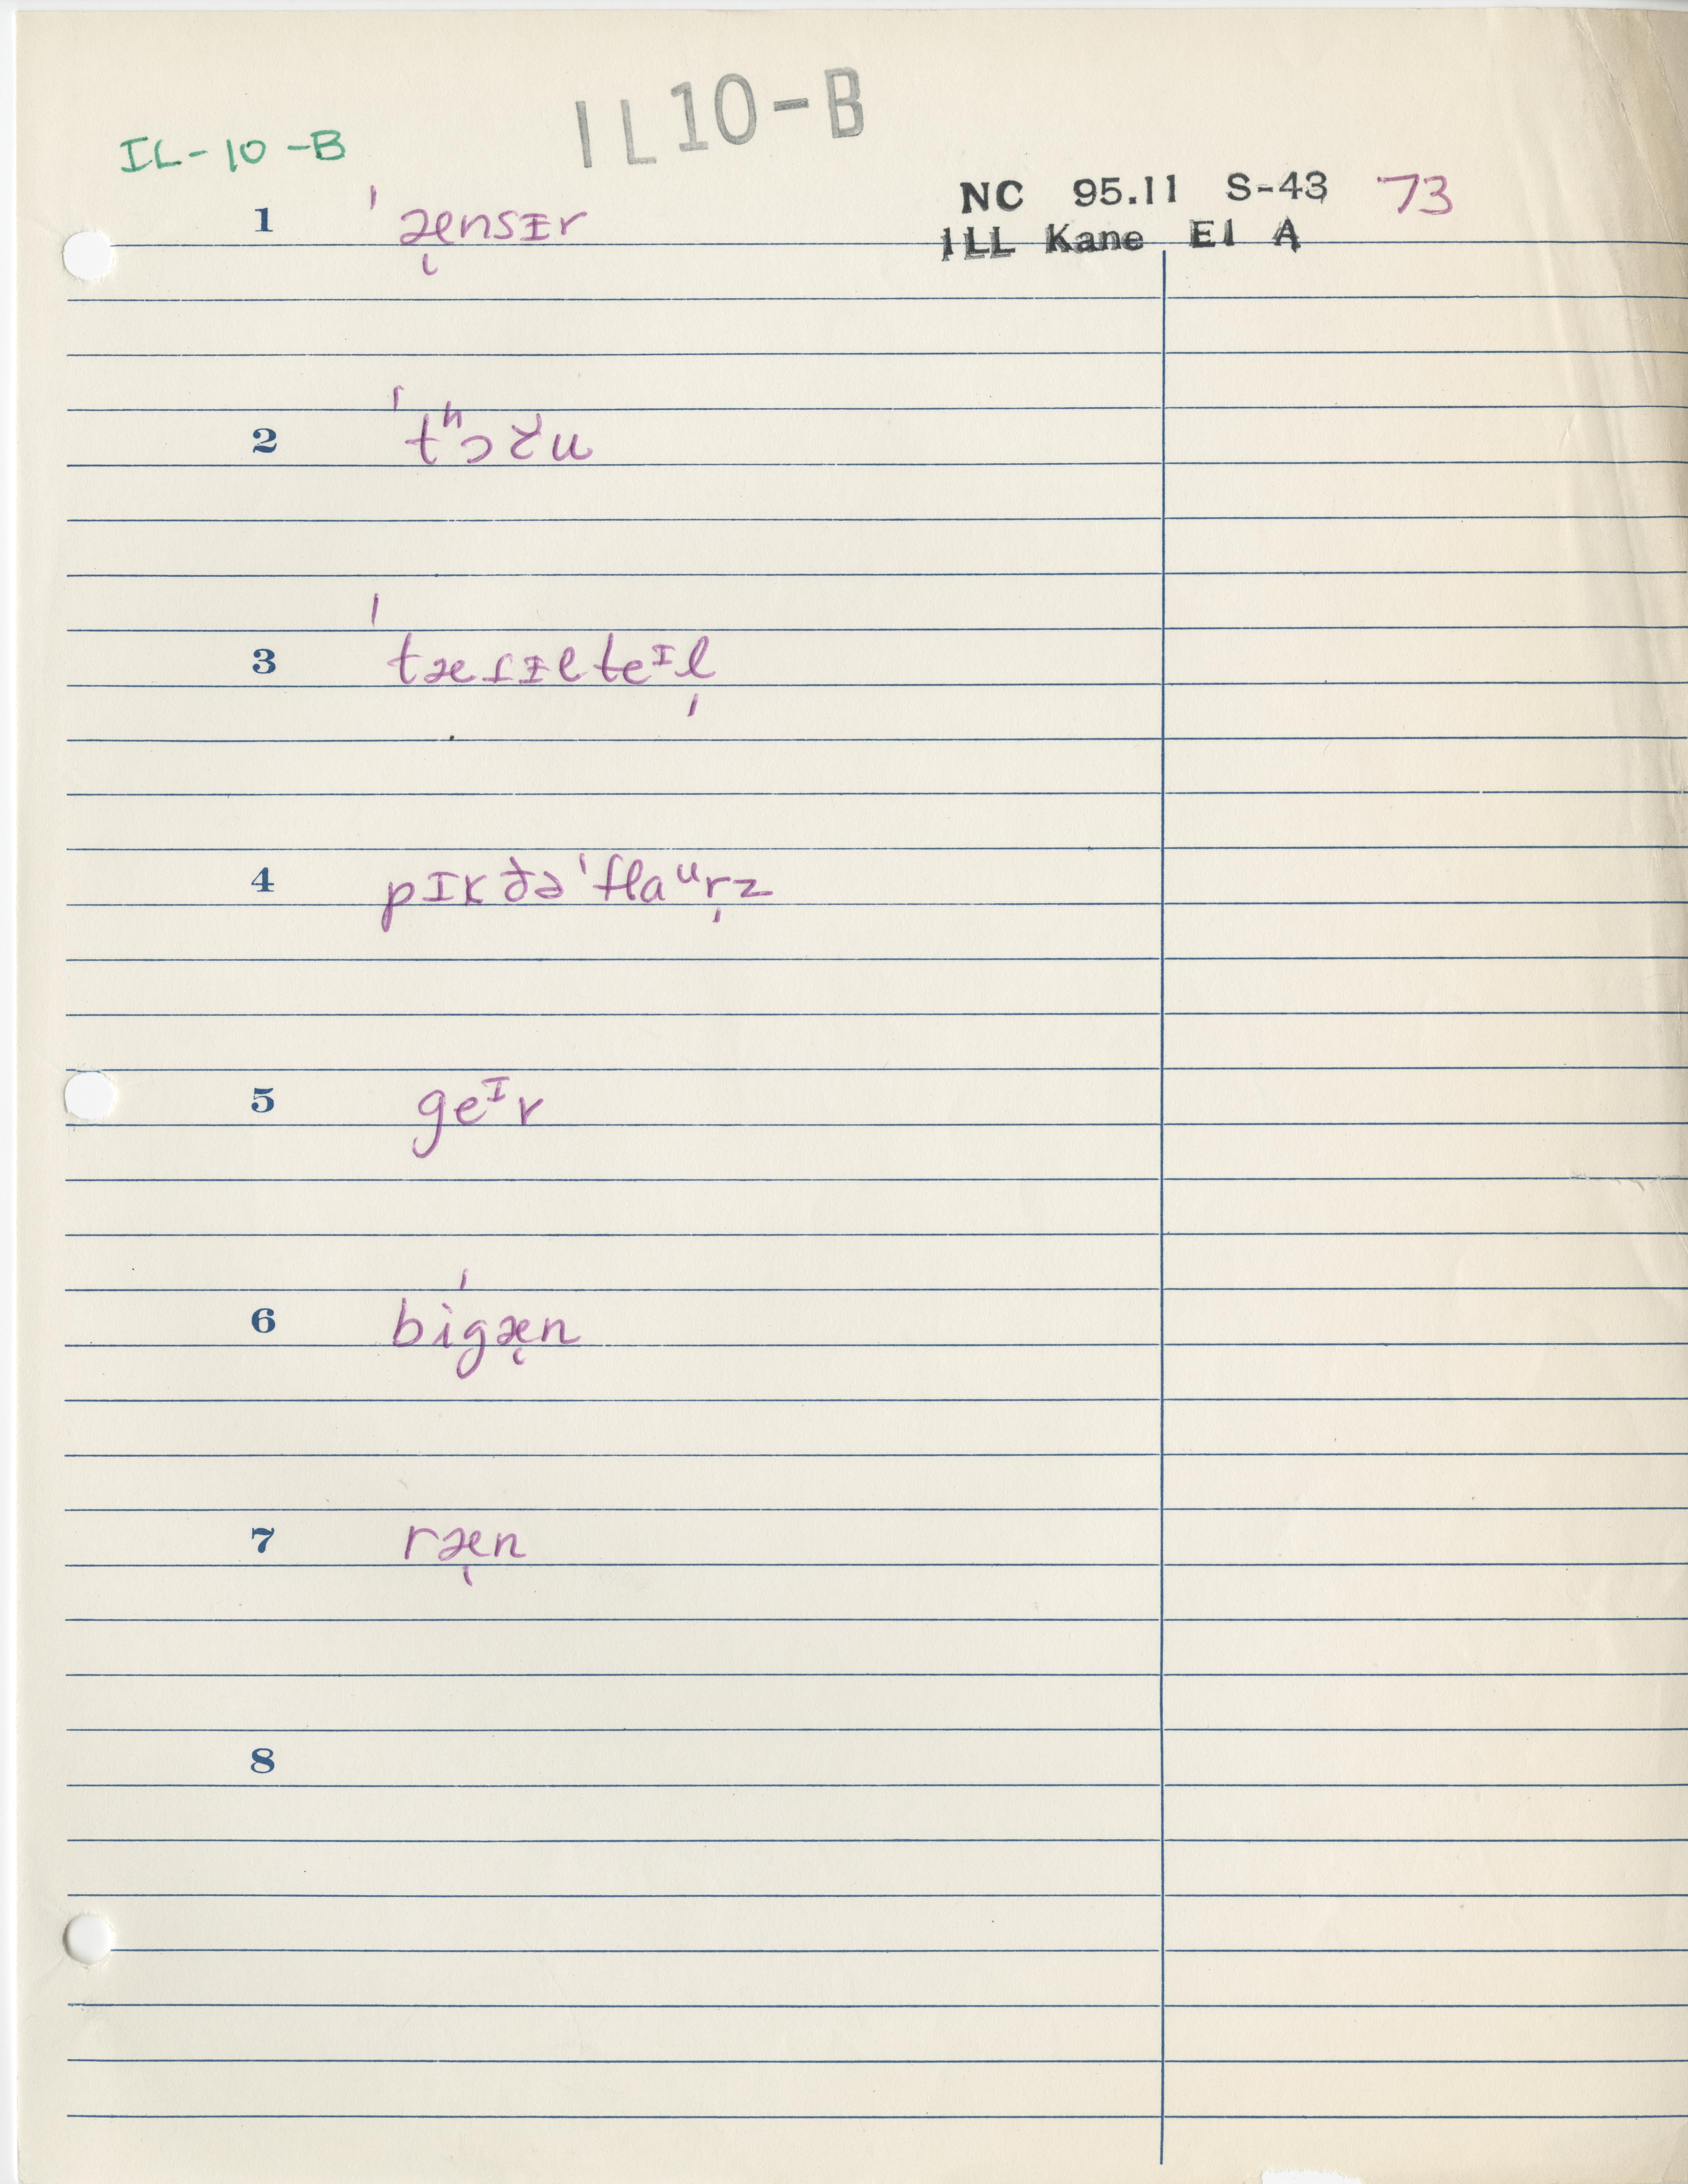 IL10-B
IL-10-B
NC 95.11 S-43 73
ILL Kane E1 A
1 ˈæ̨nsɪr
2
3 ˈtæɾɪlteᴵl̩
4 pɪkðəˈflaᵘr̩z
5 geᴵr
6 biˈgæ̨n
7 ræ̨n
8